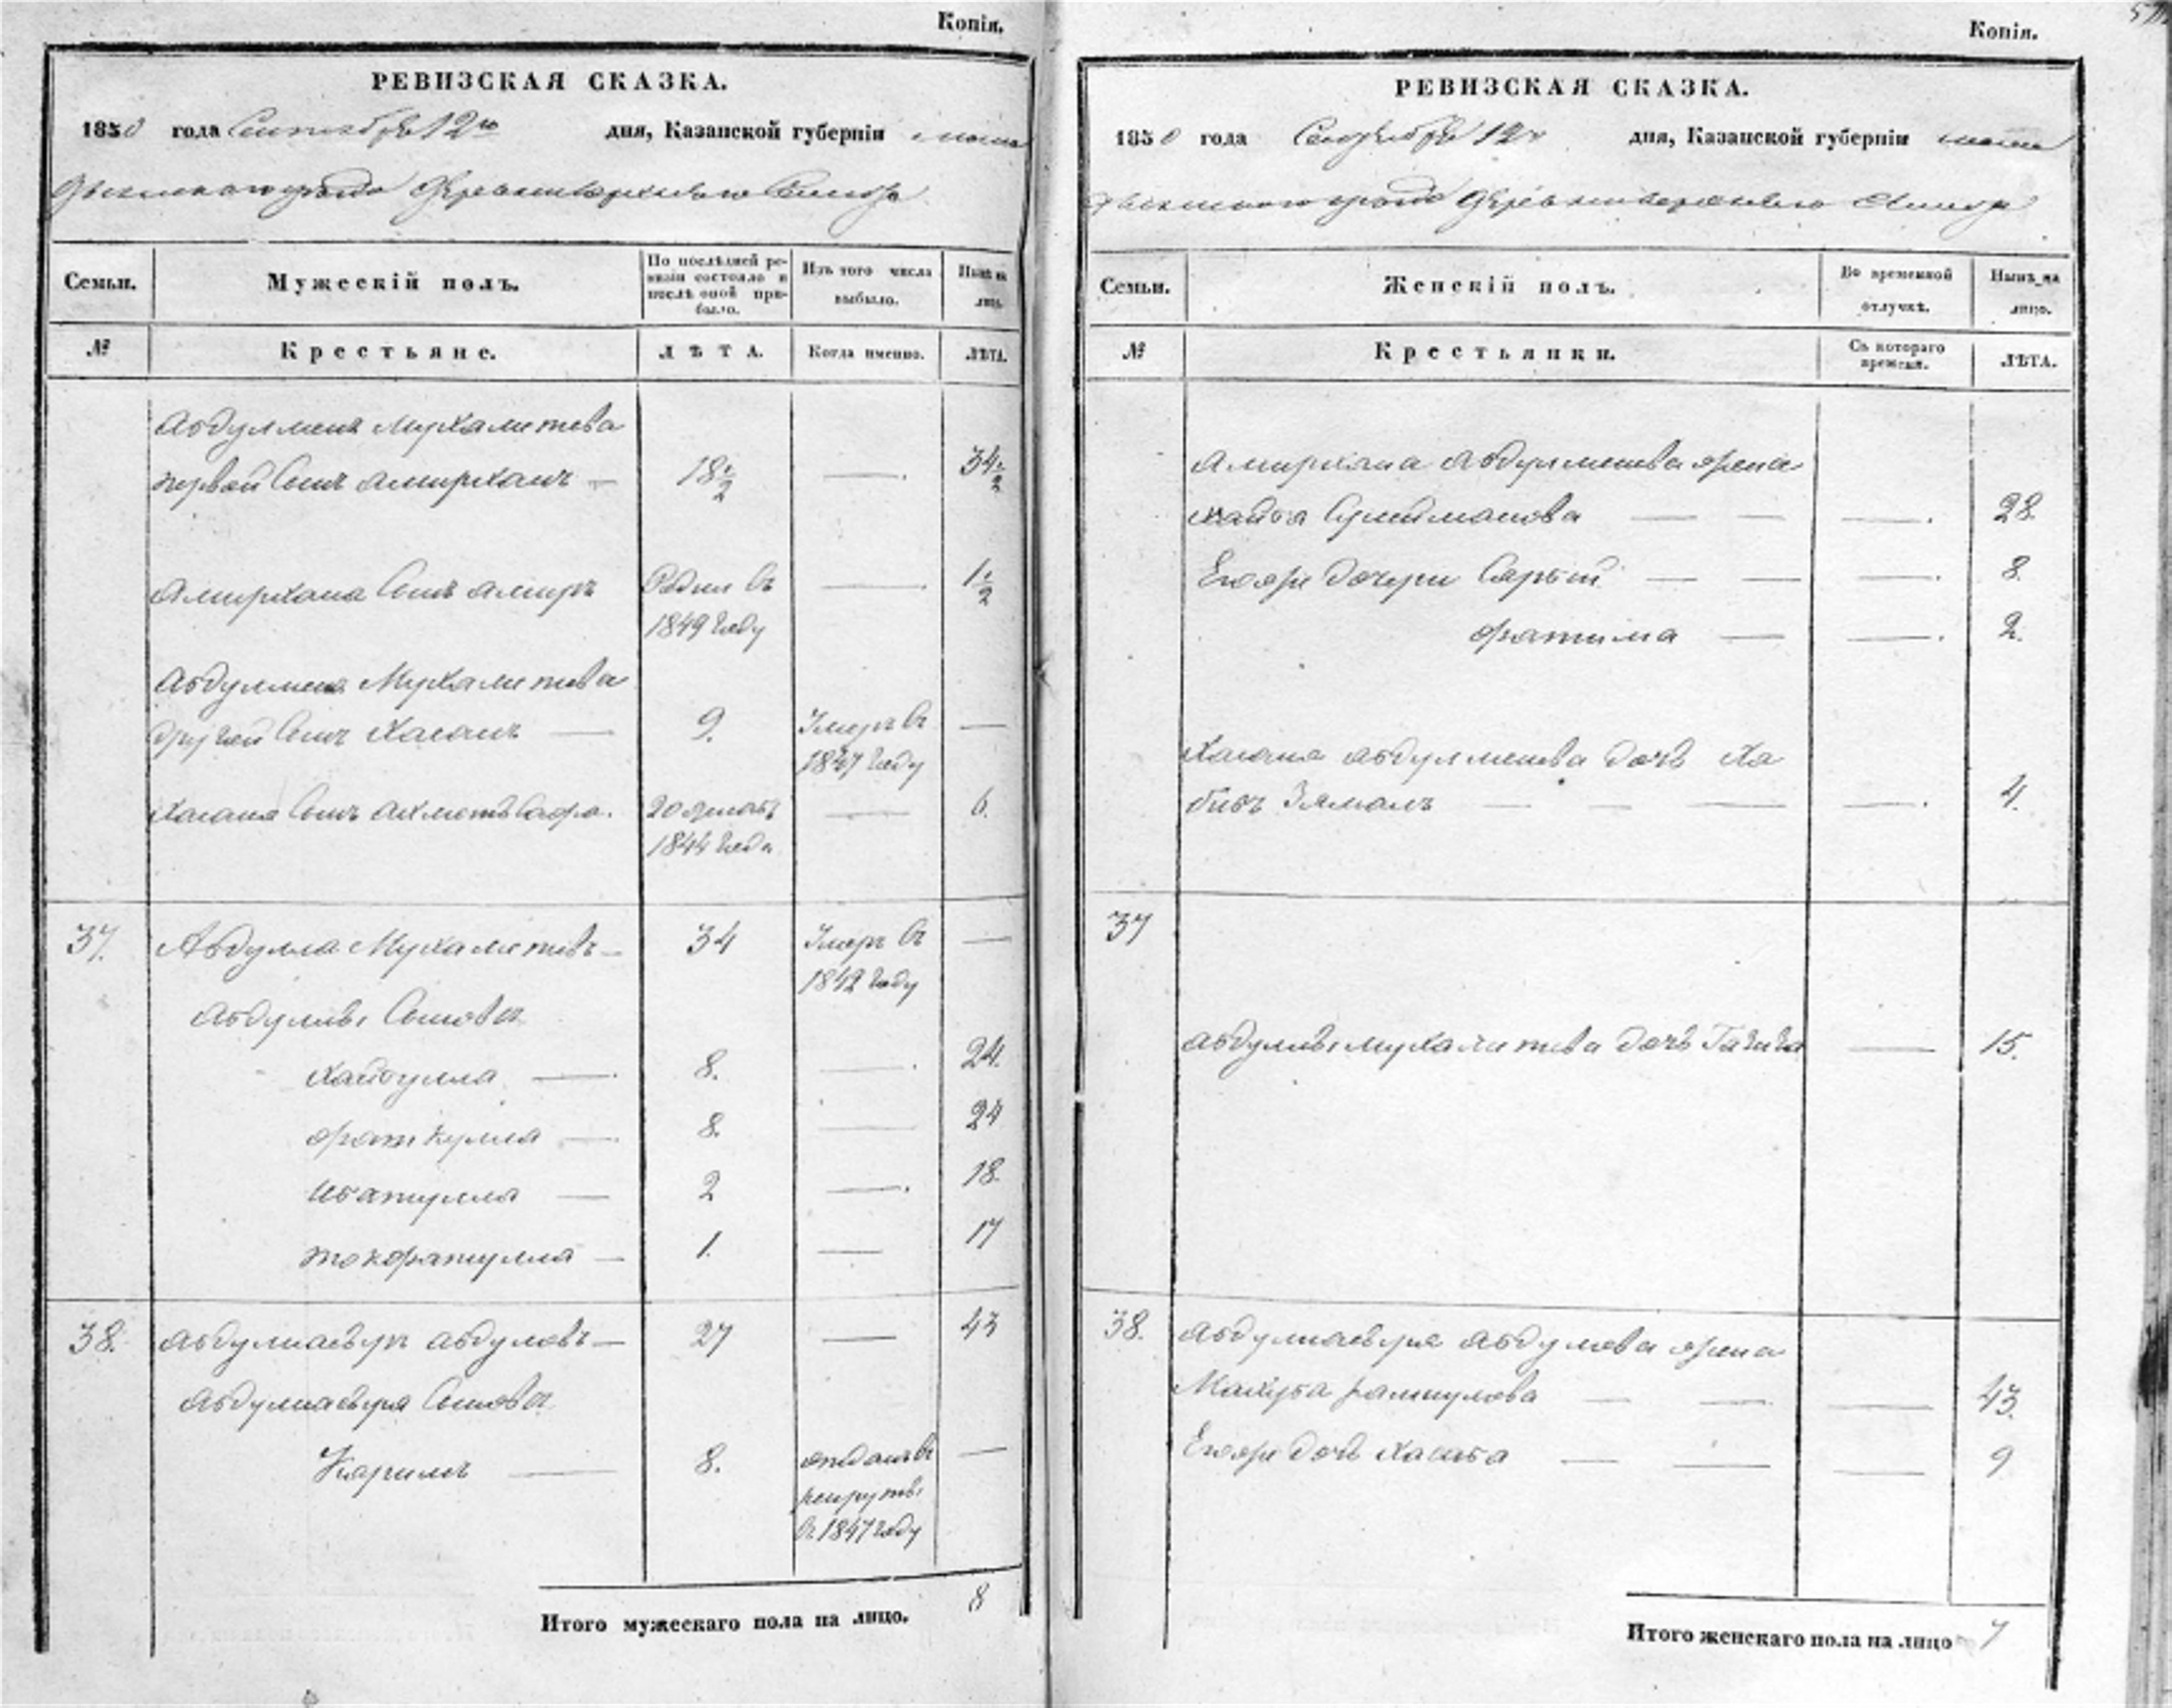 Копія.
РЕВИЗСКАЯ СКАЗКА.
1850 года Сентября 12го дня, Казанской губерніи мама
дышскаго уезда Деревни
Семьи. Мужескій полъ. По послѣдней ревизіи состояло и послѣ оной прибыло. Изъ того числа выбыло. Нынѣ на лицо.
№ Крестьяне. ЛѢТА. Когда именно. ЛѢТА.
Абдулмена Мухаметева
первой Сынъ Амирханъ — 18 1/2 — 34 1/2
Амирхана Сынъ Амиръ Родил въ — 1 1/2
1849 году
Абдулмена Мухаметева
другой Сынъ Хасанъ — 9. Умеръ въ —
1847 году
Хасана Сынъ Ахметь Сафа. 20 декабр — 6.
1844 года
37. Абдулла Мухаметевъ — 34 Умеръ въ —
1842 году
Абдуллы Сыновья
Хайбулла — 8. — 24.
Фаткулла — 8. — 24
Ибатулла — 2 — 18.
1. — 17
38. Абдулнасыръ Абдуловъ — 27 — 43
Абдулнасыра Сыновья
Каримъ — 8. отданъ въ —
рекруты
въ 1847 году
Итого мужескаго пола на лицо. 8
Копія.
РЕВИЗСКАЯ СКАЗКА.
1850 года Сентября 12го дня, Казанской губерніи мама
дышскаго уезда Деревни
Семьи. Женскій полъ. Во временной отлучкѣ. Нынѣ на лицо.
№ Крестьянки. Съ котораго времени. ЛѢТА.
Амирхана Абдулменева жена
Сулейманова — — — 28.
Егожъ дочери Сарбій — — — 8.
Фатима — — 2.
Хасана Абдулменева дочь Ха
бибъ Зямалъ — — — — 4.
37
Абдуллы Мухаметева дочь — 15.
38. Абдулнасыра Абдулова жена
Махуба — — — 43.
Егожъ дочь Хасиба — — — 9
Итого женскаго пола на лицо 7